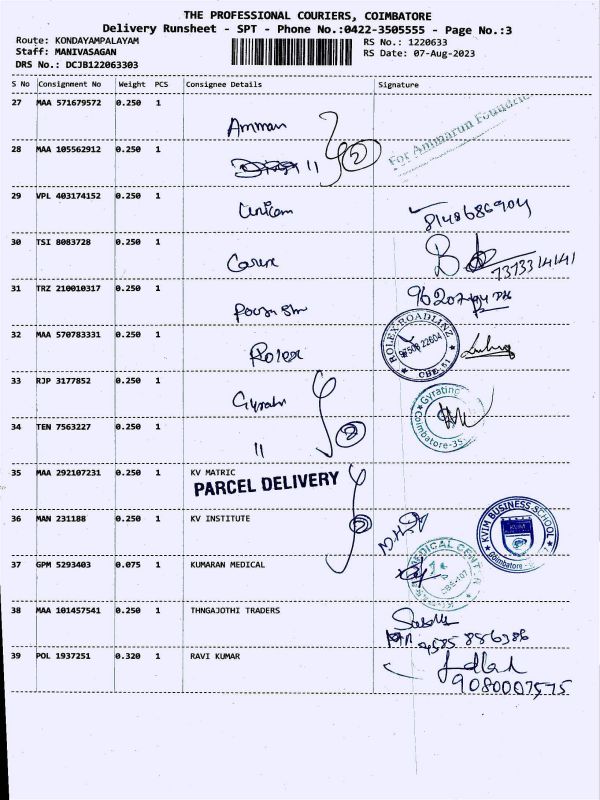 THE PROFESSIONAL COURIERS, COIMBATORE
Delivery Runsheet - SPT - Phone No.:0422-3505555 - Page No.:3
Route: KONDAYAMPALAYAM
RS No.: 1220633
Staff: MANIVASAGAN
RS Date: 07-Aug-2023
DRS No.: DCJB122063303
S No Consignment No Weight PCS Consignee Details Signature
27 MAA 571679572 0.250 1
Amman
For Ammarun Foundric
28 MAA 105562912 0.250 1
11 2
29 VPL 403174152 0.250 1
Unicam
8148686904
30 TSI 8083728 0.250 1
7373314141
31 TRZ 210010317 0.250 1
32 MAA 570783331 0.250 1
Rolex
ROLEX ROADLINZ
CBE-51
33 RJP 3177852 0.250 1
Gyrating
Coimbatore-35
34 TEN 7563227 0.250 1
11 2
35 MAA 292107231 0.250 1 KV MATRIC
PARCEL DELIVERY
36 MAN 231188 0.250 1 KV INSTITUTE
2
KVIM BUSINESS SCHOOL
KVIM
Coimbatore
37 GPM 5293403 0.075 1 KUMARAN MEDICAL
MEDICAL CENT
38 MAA 101457541 0.250 1 THNGAJOTHI TRADERS
39 POL 1937251 0.320 1 RAVI KUMAR
9080007575